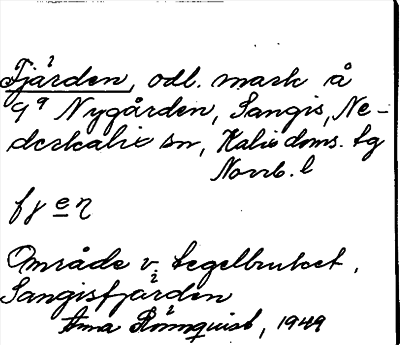 Fjärden, odl. mark å
9⁹ Nygården, Sangis, Ne-
derkalix sn, Kalix doms. tg
Norrb. l
Område v. tegelbruket,
Sangisfjärden
Rönnquist, 1949